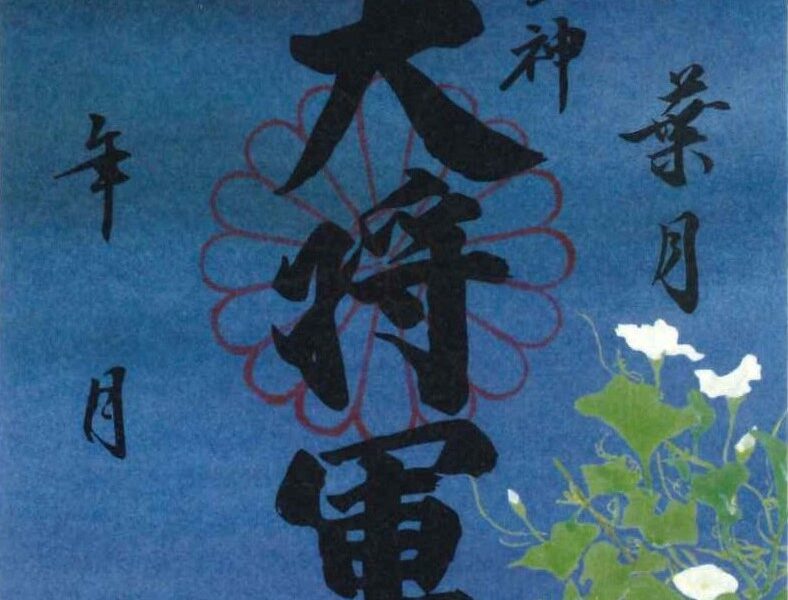 葉月
神
大将軍
年 月